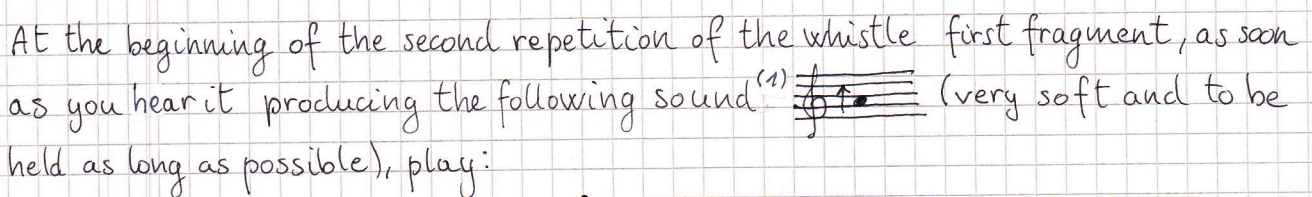 At the beginning of the second repetition of the whistle first fragment, as soon
as you hear it producing the following sound (1) (very soft and to be
held as long as possible), play: